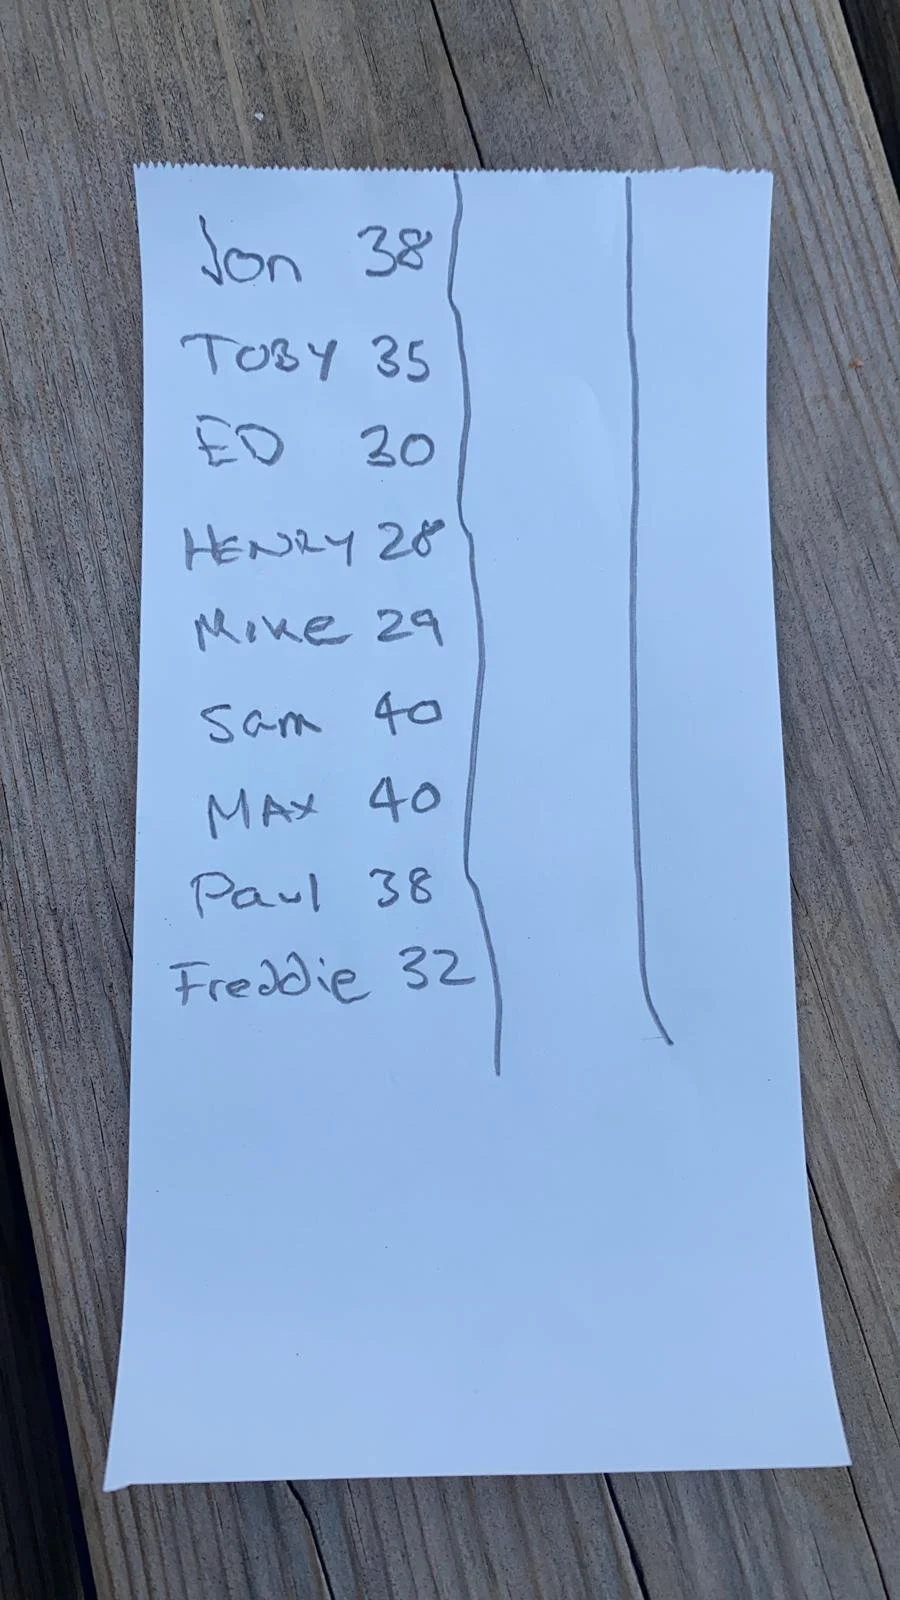 Jon 38
TOBY 35
ED 30
HENRY 28
Mike 29
Sam 40
MAX 40
Paul 38
Freddie 32